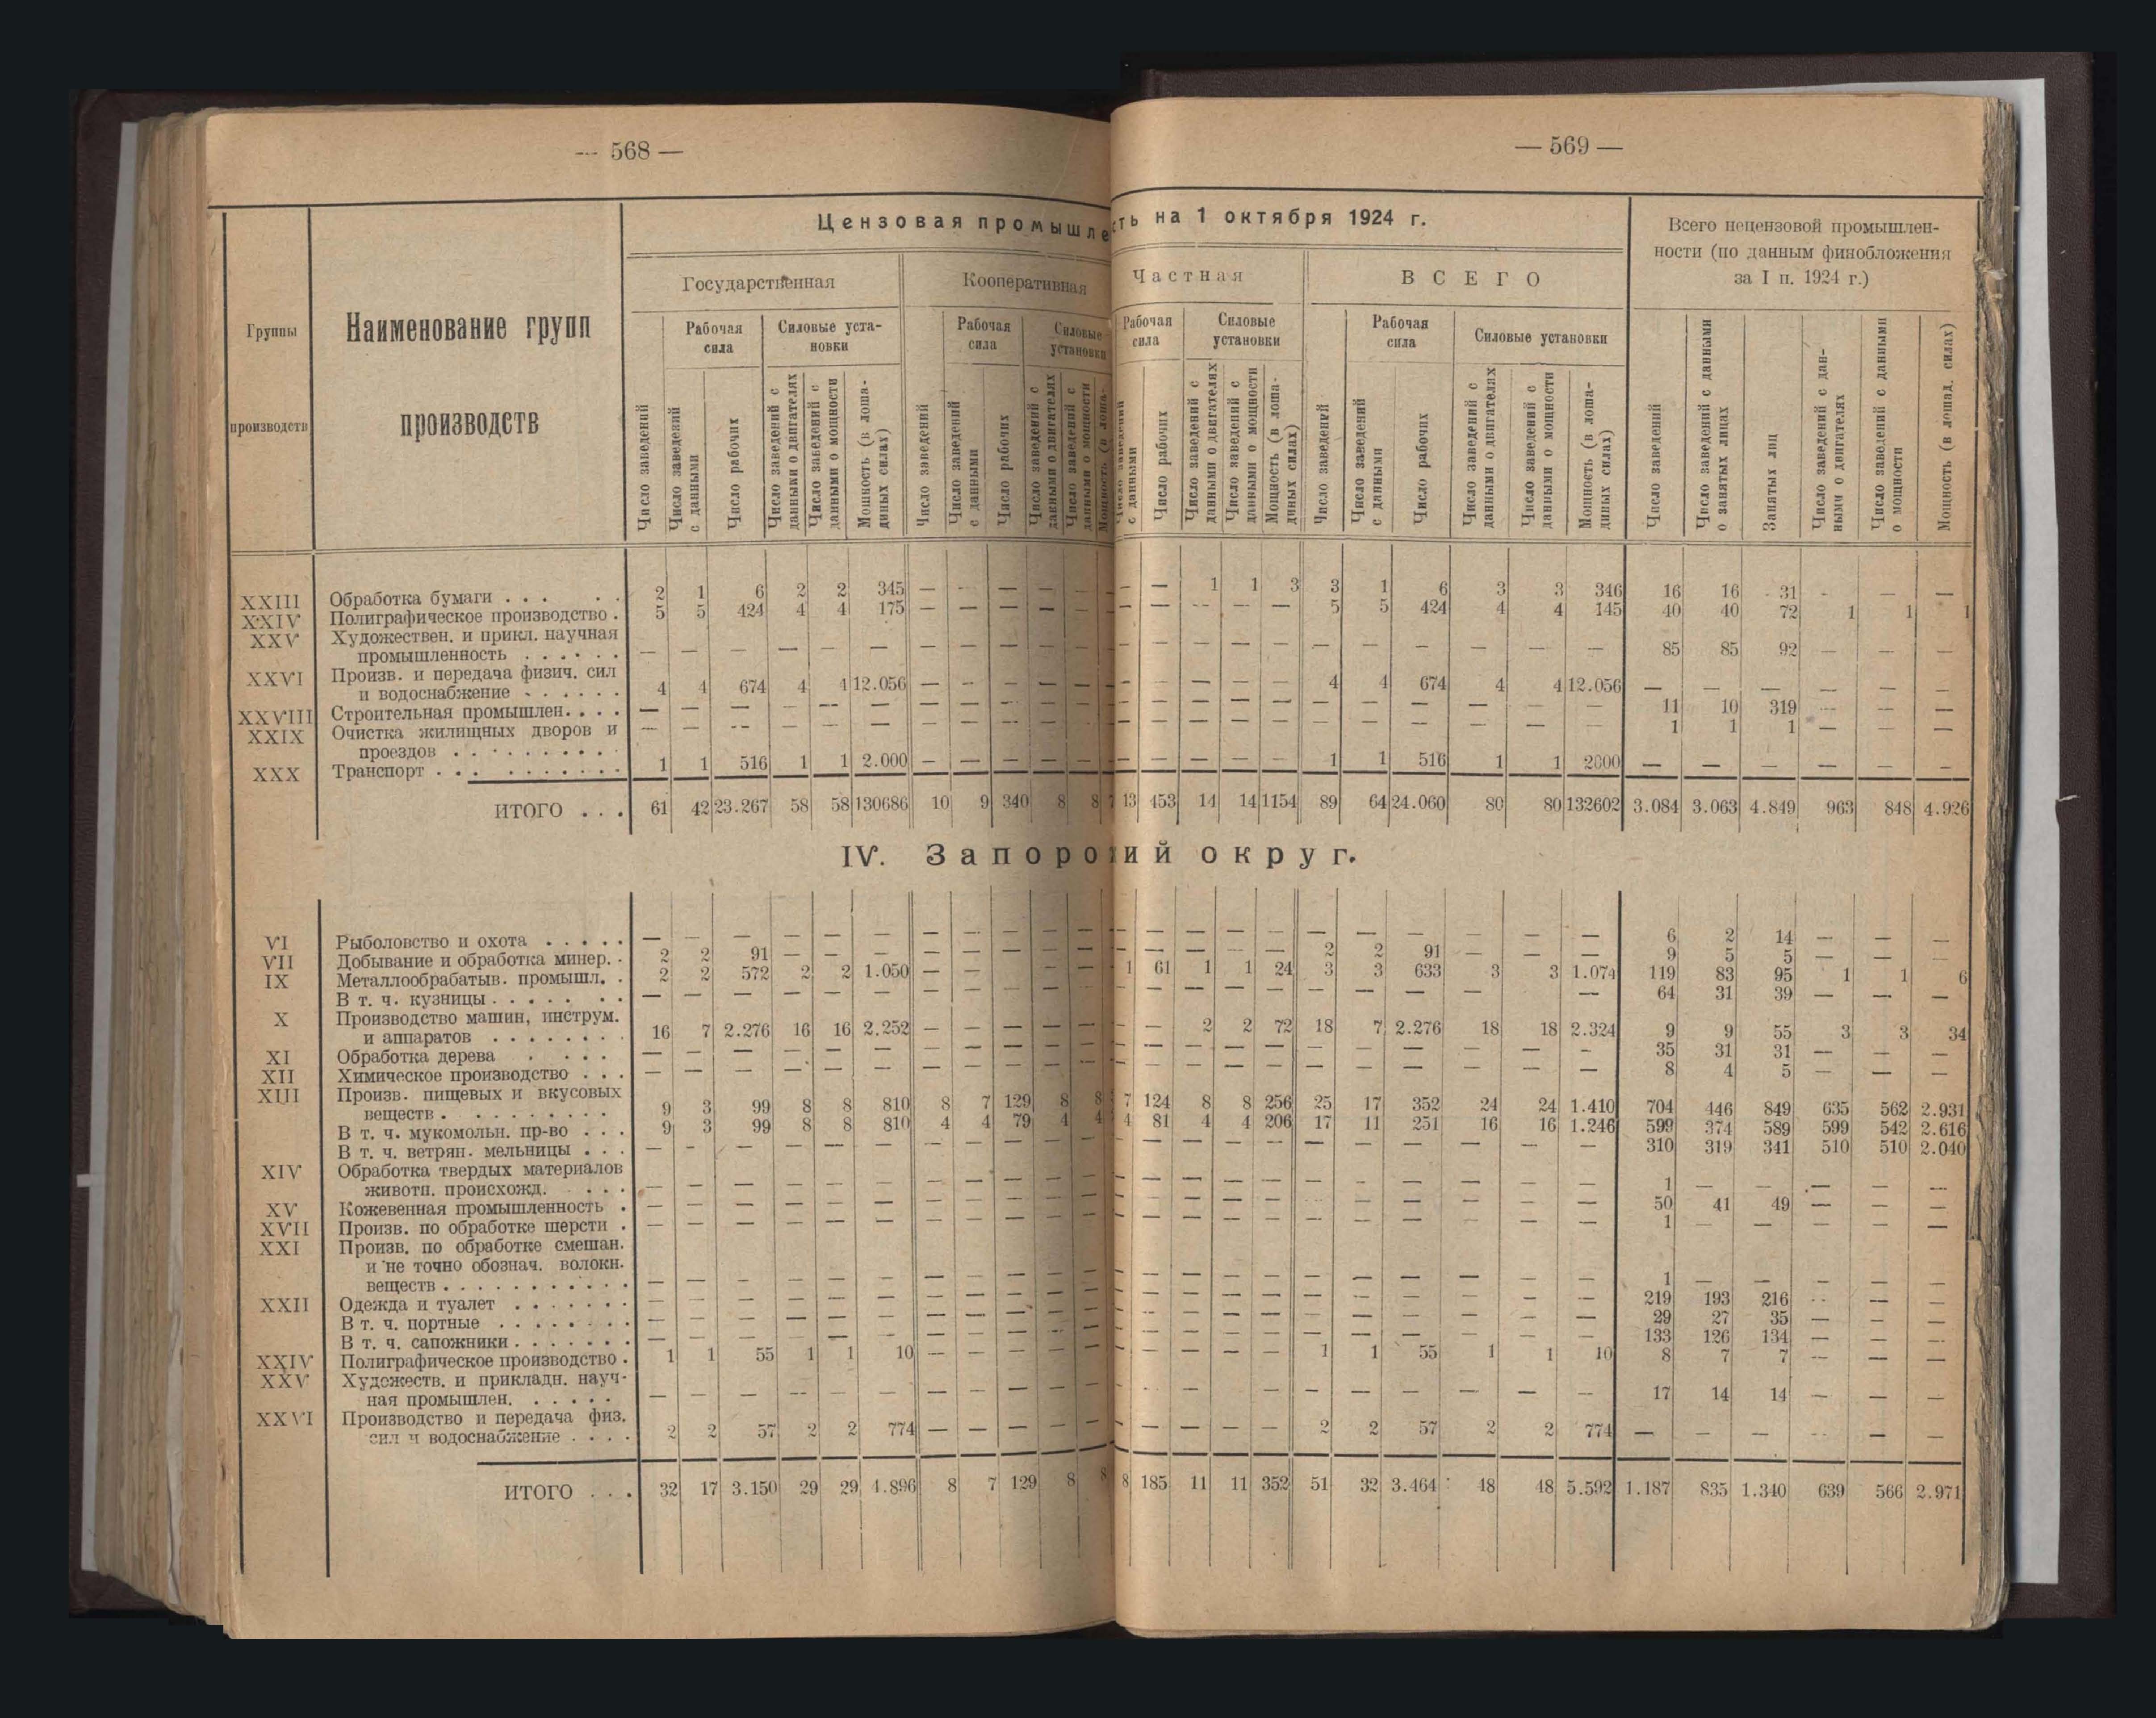 — 568 —
— 569 —
Цензовая промышле
сть на 1 октября 1924 г.
Группы производств
Наименование групп производств
Государственная
Кооперативная
Частная
ВСЕГО
Всего нецензовой промышлен-
ности (по данным финобложения
за I п. 1924 г.)
Рабочая сила
Силовые уста-
новки
Рабочая сила
Силовые установки
Рабочая сила
Силовые установки
Рабочая сила
Силовые установки
Число заведений
Число заведений с данными
Число рабочих
Число заведений с данными о двигателях
Число заведений с данными о мощности
Мощность (в лоша-
диных силах)
Число заведений
Число заведений с данными
Число рабочих
Число заведений с данными о двигателях
Число заведений с данными о мощности
Мощность (в лоша-
с данными
Число рабочих
Число заведений с данными о двигателях
Число заведений с данными о мощности
Мощность (в лоша-
диных силах)
Число заведений
Число заведений с данными
Число рабочих
Число заведений с данными о двигателях
Число заведений с данными о мощности
Мощность (в лоша-
диных силах)
Число заведений
Число заведений с данными о занятых лицах
Занятых лиц
Число заведений с дан-
ными о двигателях
Число заведений с данными о мощности
Мощность (в лошад. силах)
XXIII Обработка бумаги . . . . . 2 1 6 2 2 345 — — — — — — — — 1 1 3 3 1 6 3 3 346 16 16 31 - — —
XXIV Полиграфическое производство . 5 5 424 4 4 175 — — — — — — — — — — — 5 5 424 4 4 145 40 40 72 1 1 1
XXV Художествен. и прикл. научная
промышленность . . . . . . — — — — — — — — — — — — — — — — — — — — — — — 85 85 92 — — —
XXVI Произв. и передача физич. сил
и водоснабжение . . . . . . 4 4 674 4 4 12.056 — — — — — — — — — — — 4 4 674 4 4 12.056 — — — — — —
XXVIII Строительная промышлен. . . . — — — — — — — — — — — — — — — — — — — — — — — 11 10 319 — — —
XXIX Очистка жилищных дворов и
проездов . . . . . . . . . — — — — — — — — — — — — — — — — — — — — — — — 1 1 1 — — —
XXX Транспорт . . . . . . . . . . 1 1 516 1 1 2.000 — — — — — — — — — — — 1 1 516 1 1 2000 — — — — — —
ИТОГО . . . 61 42 23.267 58 58 130686 10 9 340 8 8 13 453 14 14 1154 89 64 24.060 80 80 132602 3.084 3.063 4.849 963 848 4.926
IV. Запоро ий округ.
VI Рыболовство и охота . . . . . — — — — — — — — — — — — — — — — — — — — — — 6 2 14 — — —
VII Добывание и обработка минер. . 2 2 91 — — — — — — — — — — — — — 2 2 91 — — — 9 5 5 — — —
IX Металлообрабатыв. промышл. . 2 2 572 2 2 1.050 — — — — 1 61 1 1 24 3 3 633 3 3 1.074 119 83 95 1 1 6
В т. ч. кузницы . . . . . . . — — — — — — — — — — — — — — — — — — — — — 64 31 39 — — —
X Производство машин, инструм.
и аппаратов . . . . . . . . 16 7 2.276 16 16 2.252 — — — — — — — 2 2 72 18 7 2.276 18 18 2.324 9 9 55 3 3 34
XI Обработка дерева . . . . — — — — — — — — — — — — — — — — — — — — — — 35 31 31 — — —
XII Химическое производство . . . — — — — — — — — — — — — — — — — — — — — — — 8 4 5 — — —
XIII Произв. пищевых и вкусовых
веществ . . . . . . . . . 9 3 99 8 8 810 8 7 129 8 8 7 124 8 8 256 25 17 352 24 24 1.410 704 446 849 635 562 2.931
В т. ч. мукомольн. пр-во . . . 9 3 99 8 8 810 4 4 79 4 4 4 81 4 4 206 17 11 251 16 16 1.246 599 374 589 599 542 2.616
В т. ч. ветрян. мельницы . . . — — — — — — — — — — — — — — — — — — — — — — 310 319 341 510 510 2.040
XIV Обработка твердых материалов
животн. происхожд. . . . — — — — — — — — — — — — — — — — — — — — — — 1 — — — — —
XV Кожевенная промышленность . — — — — — — — — — — — — — — — — — — — — — — 50 41 49 — — —
XVII Произв. по обработке шерсти . — — — — — — — — — — — — — — — — — — — — — — 1 — — — — —
XXI Произв. по обработке смешан.
и не точно обознач. волокн.
веществ . . . . . . . . . . . — — — — — — — — — — — — — — — — — — — — — — 1 — — — — —
XXII Одежда и туалет . . . . . . . — — — — — — — — — — — — — — — — — — — — — — 219 193 216 — — —
В т. ч. портные . . . . . . . . — — — — — — — — — — — — — — — — — — — — — — 29 27 35 — — —
В т. ч. сапожники . . . . . . . — — — — — — — — — — — — — — — — — — — — — — 133 126 134 — — —
XXIV Полиграфическое производство . 1 1 55 1 1 10 — — — — — — — — — — 1 1 55 1 1 10 8 7 7 — — —
XXV Художеств. и прикладн. науч-
ная промышлен. . . . . . — — — — — — — — — — — — — — — — — — — — — — 17 14 14 — — —
XXVI Производство и передача физ.
сил и водоснабжение . . . . 2 2 57 2 2 774 — — — — — — — — — — 2 2 57 2 2 774 — — — — — —
ИТОГО . . . 32 17 3.150 29 29 4.896 8 7 129 8 8 8 185 11 11 352 51 32 3.464 48 48 5.592 1.187 835 1.340 639 566 2.971